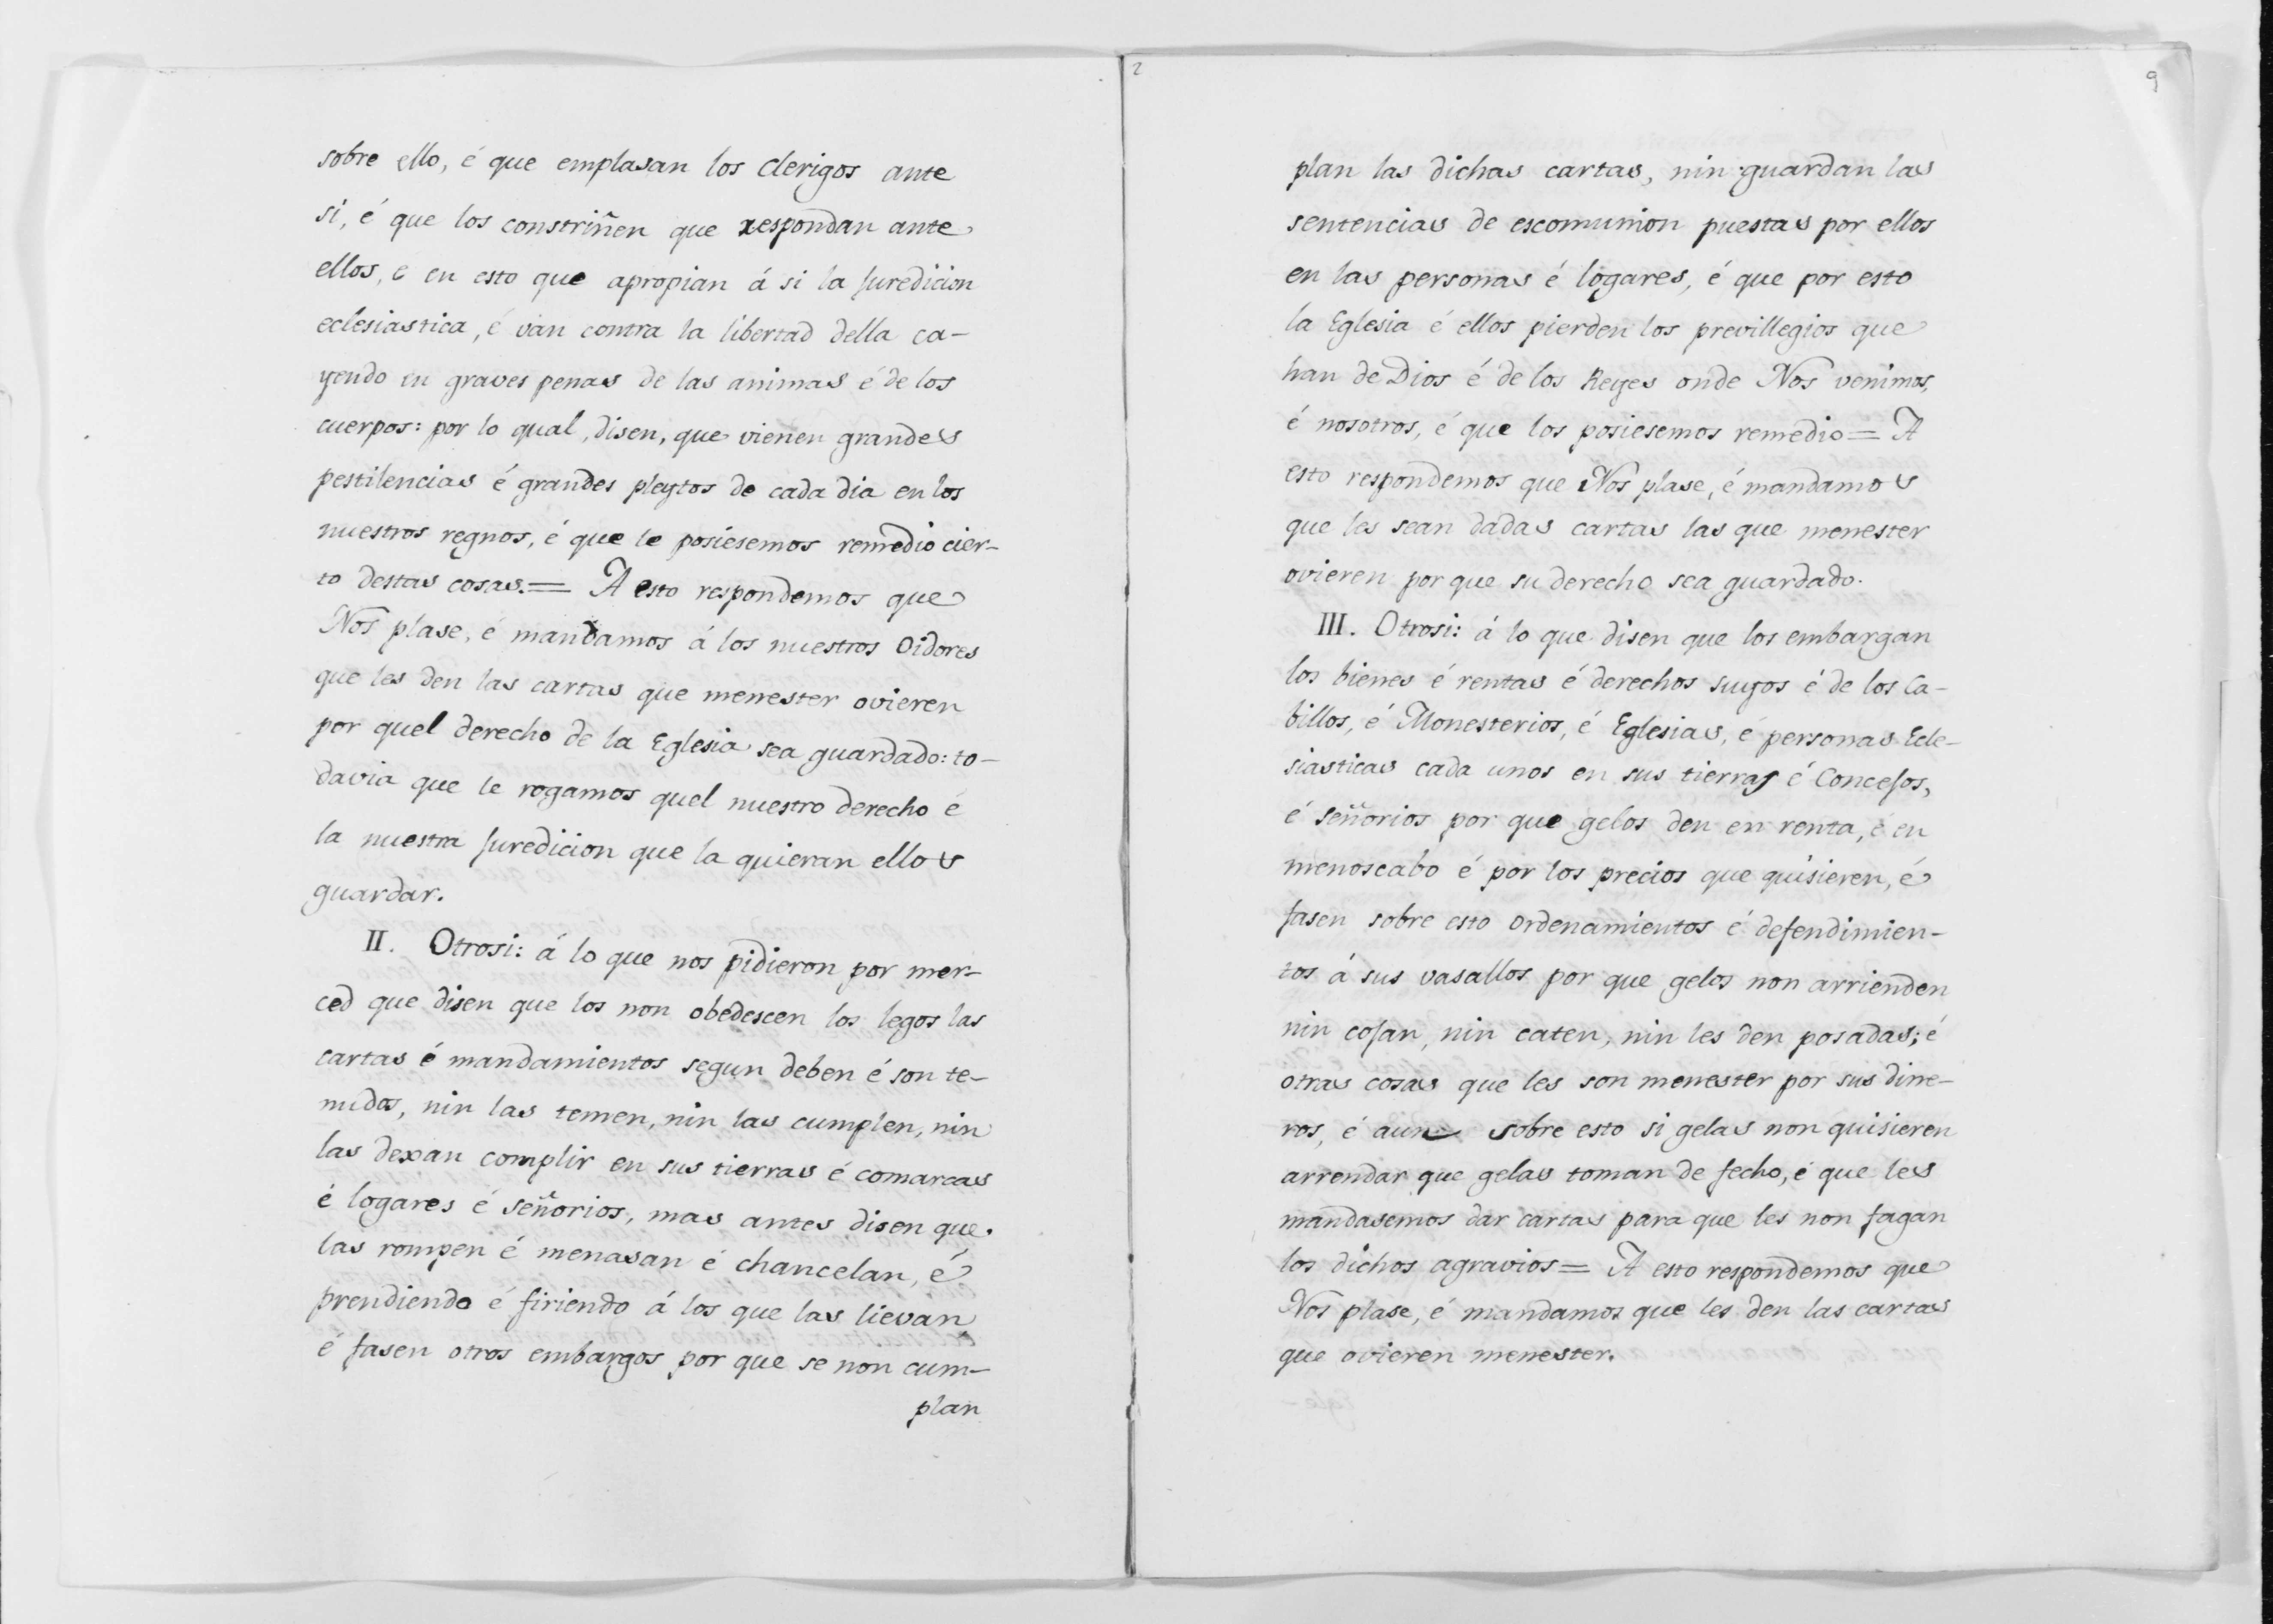 sobre ello, é que emplasan los clerigos ante
si, é que los constriñen que respondan ante
ellos, e en esto que apropian á si la juredicion
eclesiastica, é van contra la libertad della ca-
yendo en graves penas de las animas é de los
cuerpos: por lo qual, disen, que vienen grandes
pestilencias é grandes pleytos de cada dia en los
nuestros regnos, é que le posiesemos remedio cier-
to destas cosas.= A esto respondemos que
Nos plase, é mandamos á los nuestros Oidores
que les den las cartas que menester ovieren
por quel derecho de la Eglesia sea guardado: to-
davia que le rogamos quel nuestro derecho é
la nuestra juredicion que la quieran ellos
guardar.
II. Otrosi: á lo que nos pidieron por mer-
ced que disen que los non obedescen los legos las
cartas é mandamientos segun deben é son te-
nudos, nin las temen, nin las cumplen, nin
las dexan complir en sus tierras é comarcas
é logares é señorios, mas antes disen que
las rompen é menasan é chancelan, é
prendiendo é firiendo á los que las lievan
é fasen otros embargos por que se non cum-
plan
2
9
plan las dichas cartas, nin guardan las
sentencias de escomunion puestas por ellos
en las personas é logares, é que por esto
la Eglesia é ellos pierden los previllegios que
han de Dios é de los Reyes onde Nos venimos,
é nosotros, é que los posiesemos remedio= A
esto respondemos que Nos plase, é mandamos
que les sean dadas cartas las que menester
ovieren por que su derecho sea guardado.
III. Otrosi: á lo que disen que los embargan
los bienes é rentas é derechos suyos é de los Ca-
billos, é Monesterios, é Eglesias, é personas Ecle-
siasticas cada unos en sus tierras é Concejos,
é señorios por que gelos den en renta, é en
menoscabo é por los precios que quisieren, é
fasen sobre esto ordenamientos é defendimien-
tos á sus vasallos por que gelos non arrienden
nin cojan, nin caten, nin les den posadas; é
otras cosas que les son menester por sus dine-
ros, é aun sobre esto si gelas non quisieren
arrendar que gelas toman de fecho, é que les
mandasemos dar cartas para que les non fagan
los dichos agravios= A esto respondemos que
Nos plase, é mandamos que les den las cartas
que ovieren menester.